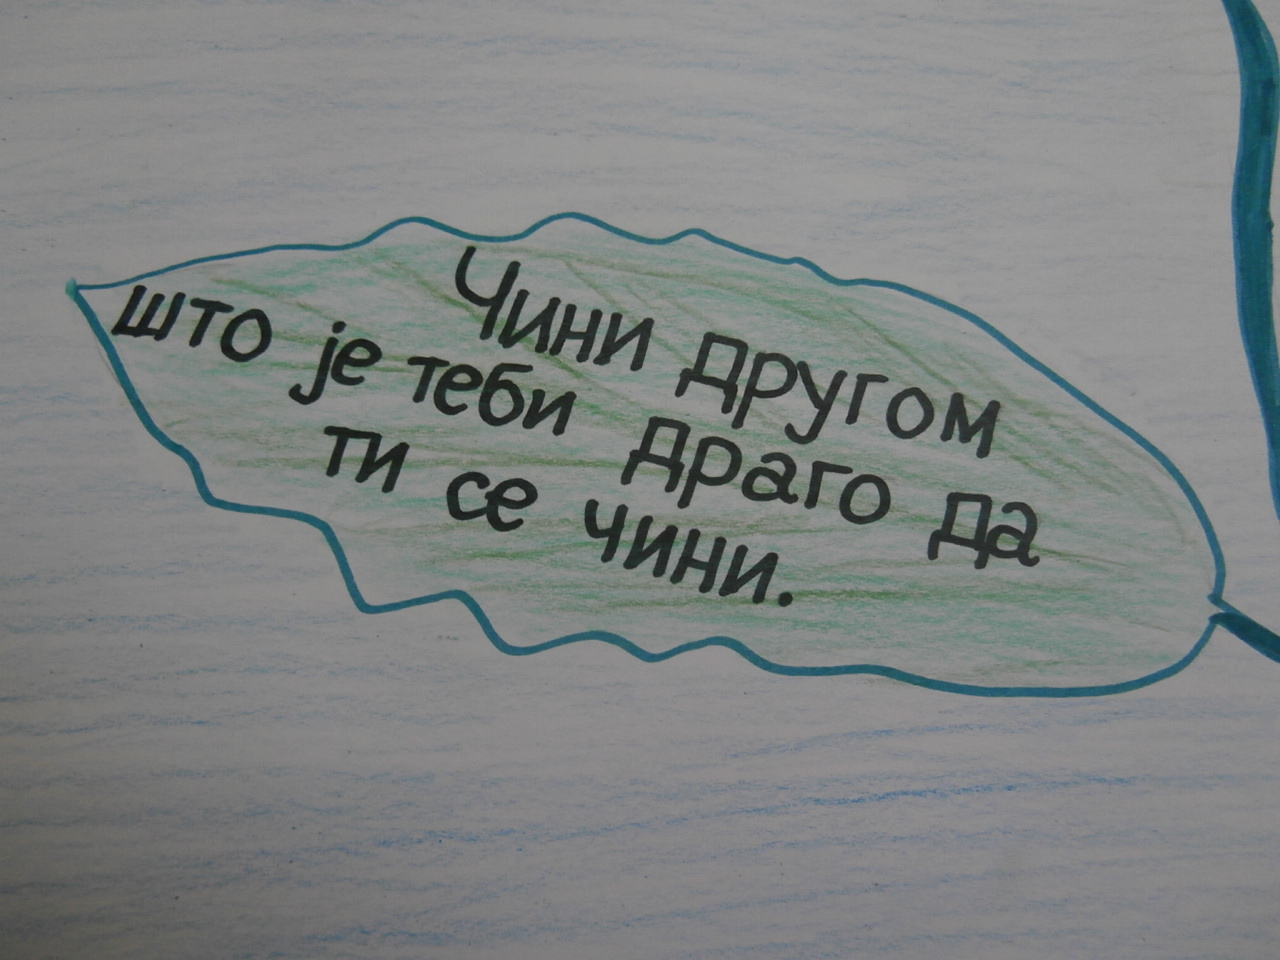 Чини другом
што је теби драго да
ти се чини.